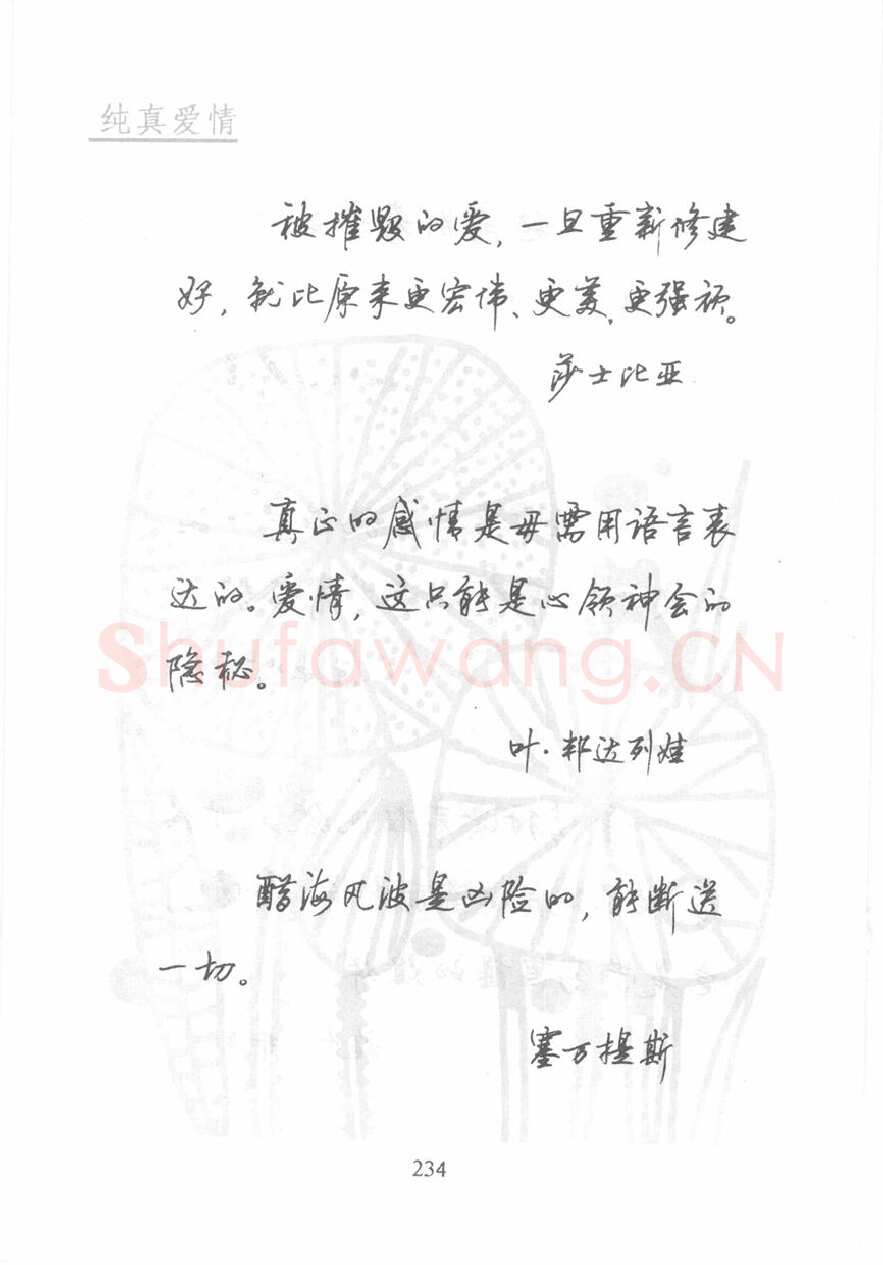 纯真爱情
被摧毁的爱,一旦重新修建
好,就比原来更宏伟、更美、更强顽。
莎士比亚
真正的感情是毋需用语言表
达的。爱情,这只能是心领神会的
隐秘。
Shufawang.CN
叶·邦达列娃
醋海风波是凶险的,能断送
一切。
塞万提斯
234